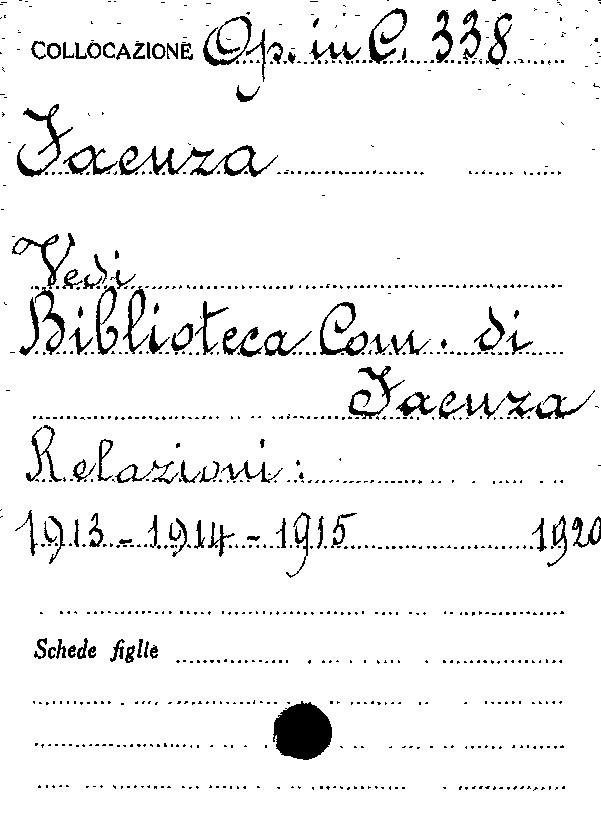 COLLOCAZIONE Op. in C. 338
Faenza
Vedi
Biblioteca Com. di
Faenza
Relazioni:
1913 - 1914 - 1915 1920
Schede figlie